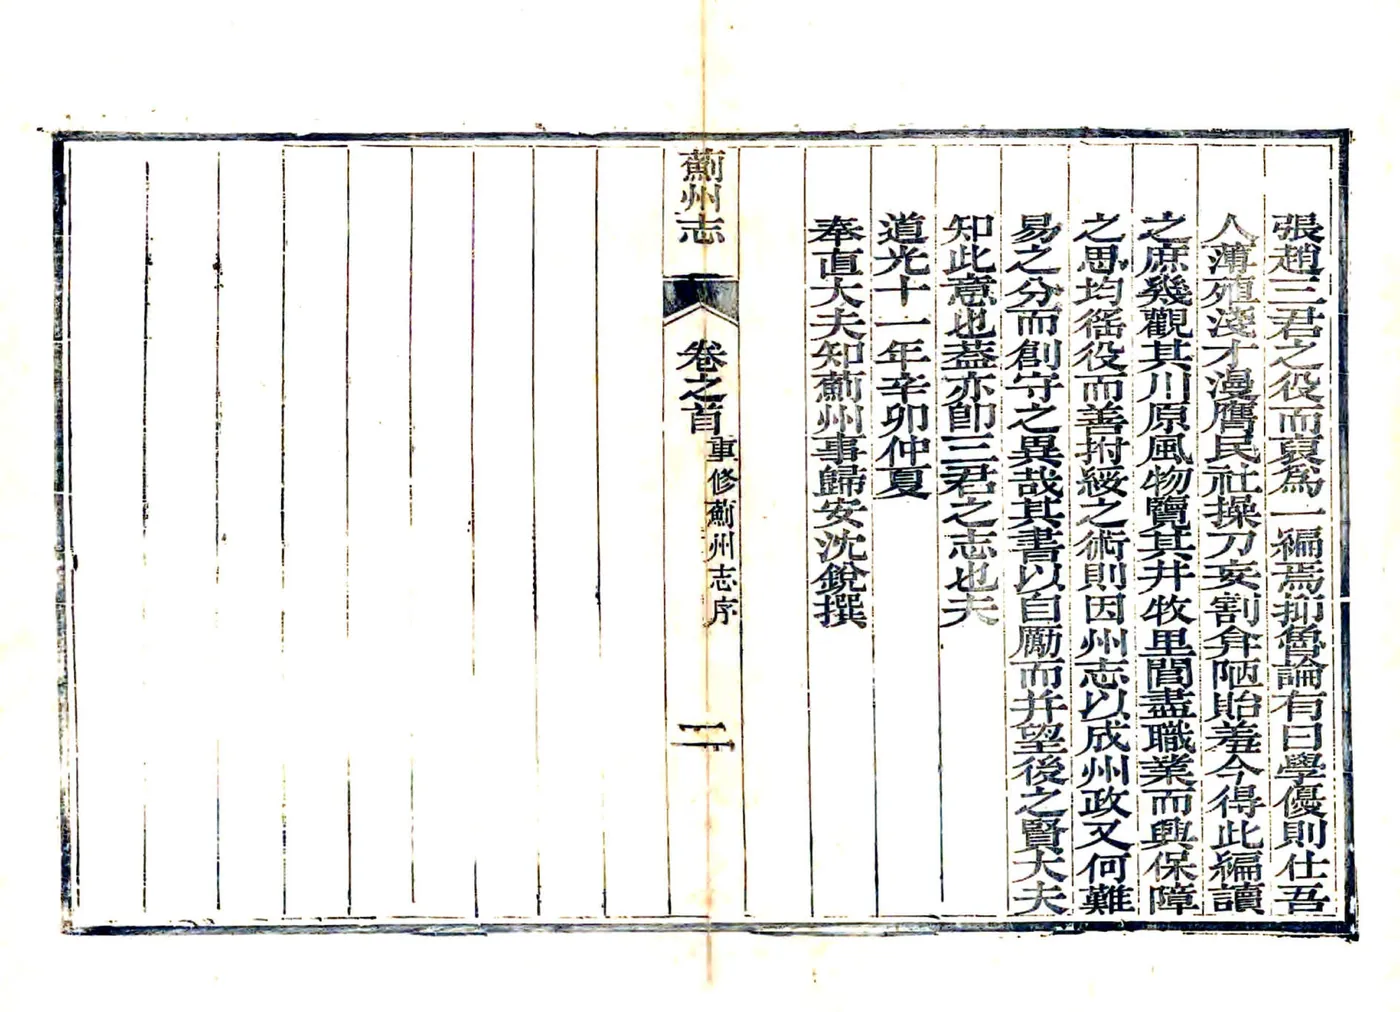 張趙三君之役而裒爲一編焉抑魯論有曰學優則仕吾
人薄殖淺才漫膺民社操刀妄割弇陋貽羞今得此編讀
之庶幾觀其川原風物覽其井牧里閭盡職業而興保障
之思均徭役而善拊綏之術則因州志以成州政又何難
易之分而創守之異哉其書以自勵而幷望後之賢大夫
知此意也葢亦卽三君之志也夫
道光十一年辛卯仲夏
奉直大夫知薊州事歸安沈銳撰
薊州志
卷之首
重修薊州志序
二